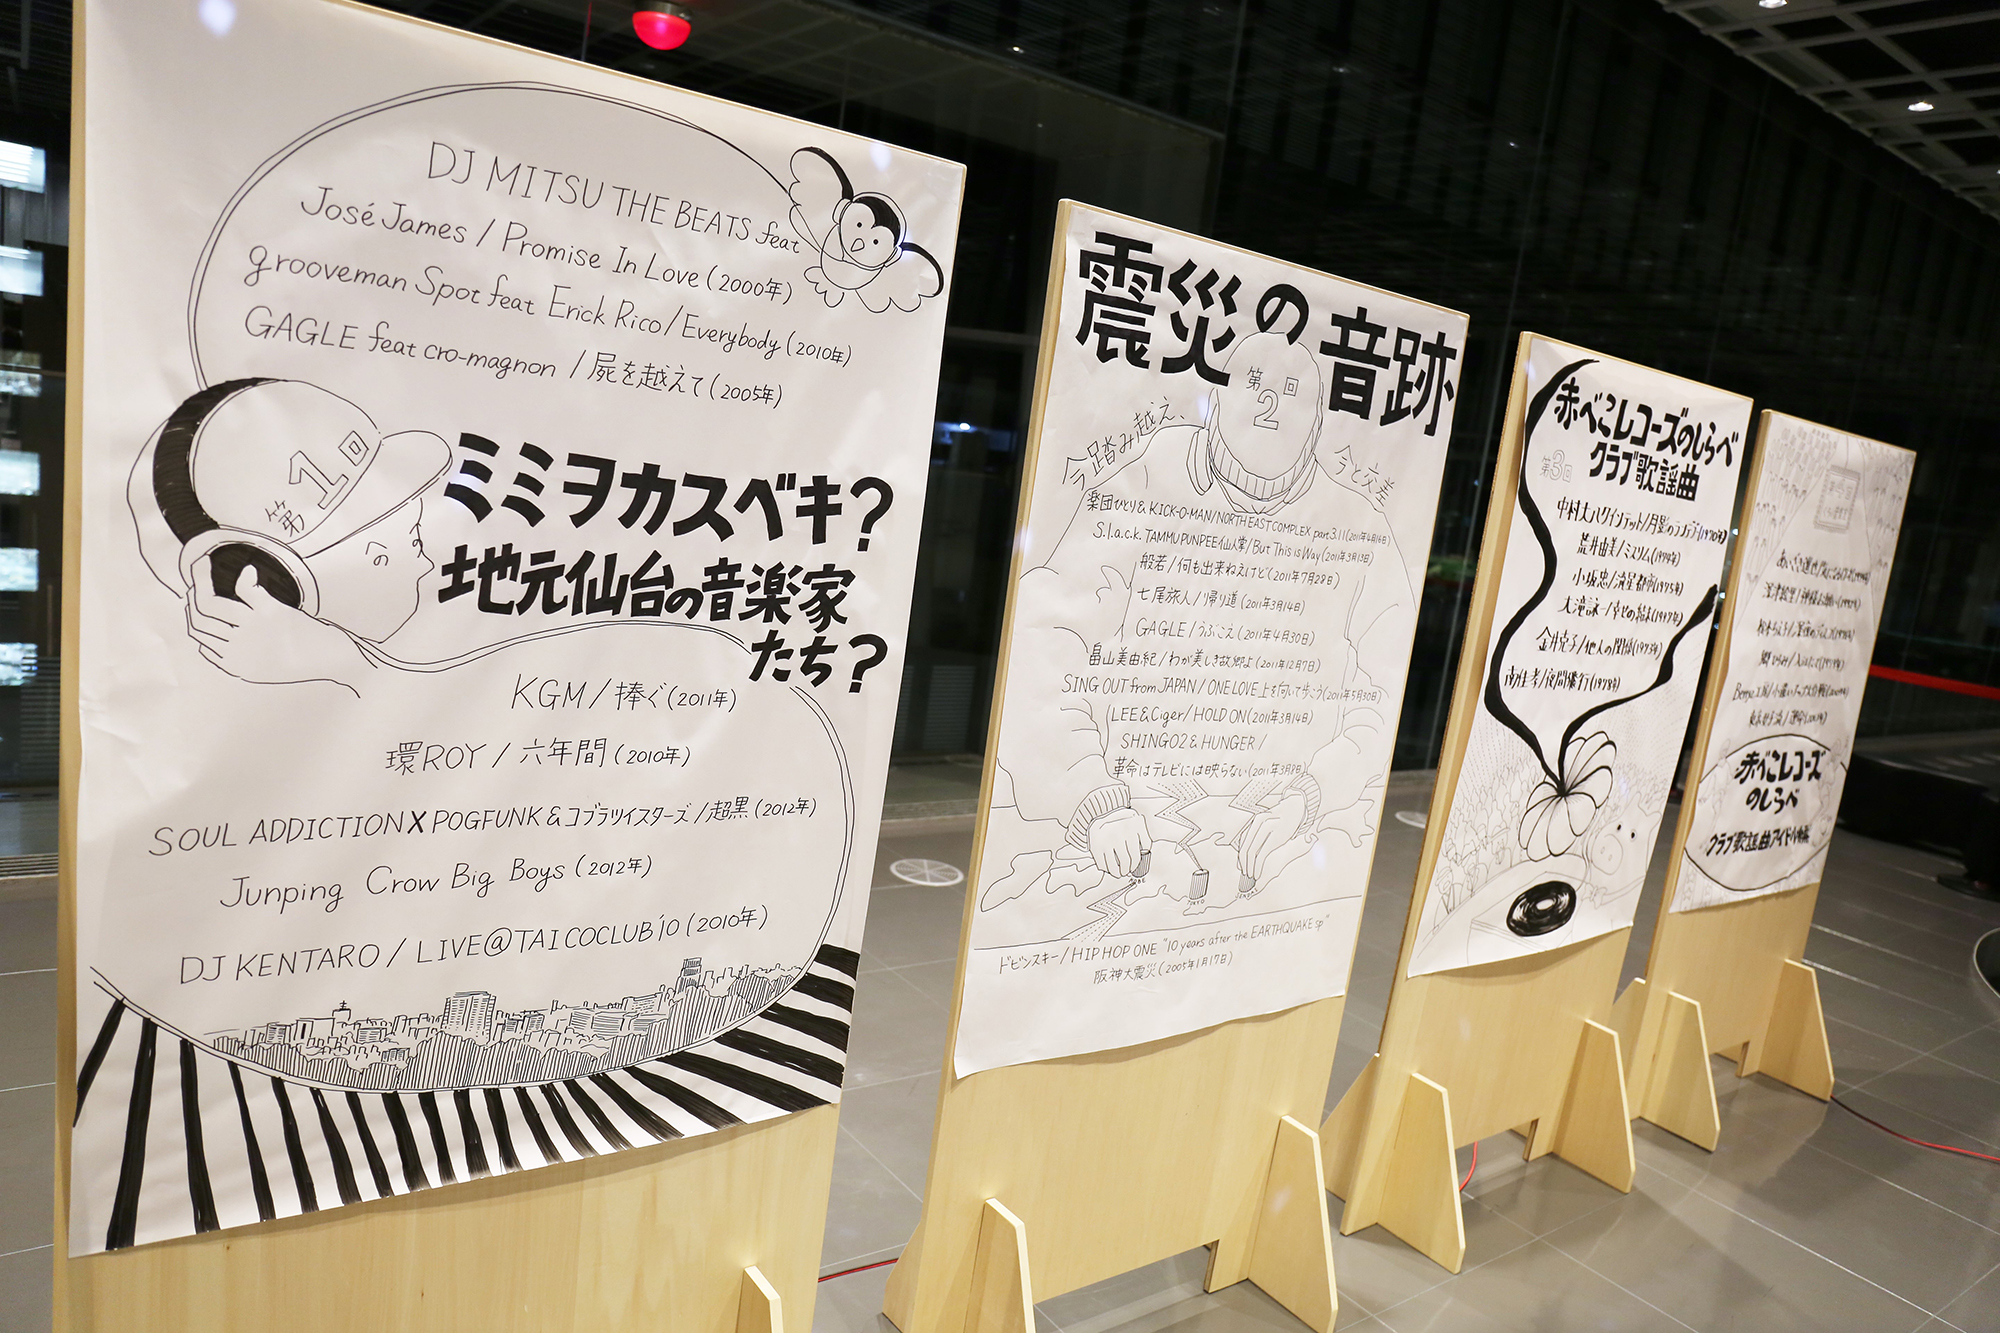 DJ MITSU THE BEATS feat
José James / Promise In Love (2000年)
grooveman Spot feat Erick Rico / Everybody (2010年)
GAGLE feat cro-magnon / 屍を越えて (2005年)
第1回
ミミヲカスベキ?
地元仙台の音楽家
たち?
KGM / 捧ぐ (2011年)
環ROY / 六年間 (2010年)
SOUL ADDICTION X POGFUNK & コブラツイスターズ / 超黒 (2012年)
Junping Crow Big Boys (2012年)
DJ KENTARO / LIVE@TAICOCLUB'10 (2010年)
震災の音跡
第2回
今踏み越え、
今と交差
楽団ひとり & KICK-O-MAN / NORTH EAST COMPLEX part3.11 (2011年4月14日)
S.l.a.c.k. TAMMU PUNPEE 仙人掌 / But This is Way (2011年3月13日)
般若 / 何も出来ねえけど (2011年7月28日)
七尾旅人 / 帰り道 (2011年3月14日)
GAGLE / うぶこえ (2011年4月30日)
畠山美由紀 / わが美しき故郷よ (2011年12月7日)
SING OUT from JAPAN / ONE LOVE 上を向いて歩こう (2011年5月30日)
LEE & Ciger / HOLD ON (2011年3月14日)
SHINGO2 & HUNGER /
革命はテレビには映らない (2011年3月8日)
KOBE
TOKYO
SENDAI
ドビンスキー / HIP HOP ONE "10 years after the EARTHQUAKE sp"
阪神大震災 (2005年1月17日)
赤べこレコーズのしらべ
クラブ歌謡曲
第3回
中村八大クインテット / 月影のランデブー (1970年)
荒井由美 / ミスリム (1974年)
小坂忠 / 流星都市 (1975年)
大滝詠一 / 幸せな結末 (1997年)
金井克子 / 他人の関係 (1973年)
南佳孝 / 夜間飛行 (1978年)
赤べこレコーズ
のしらべ
クラブ歌謡曲アイドル